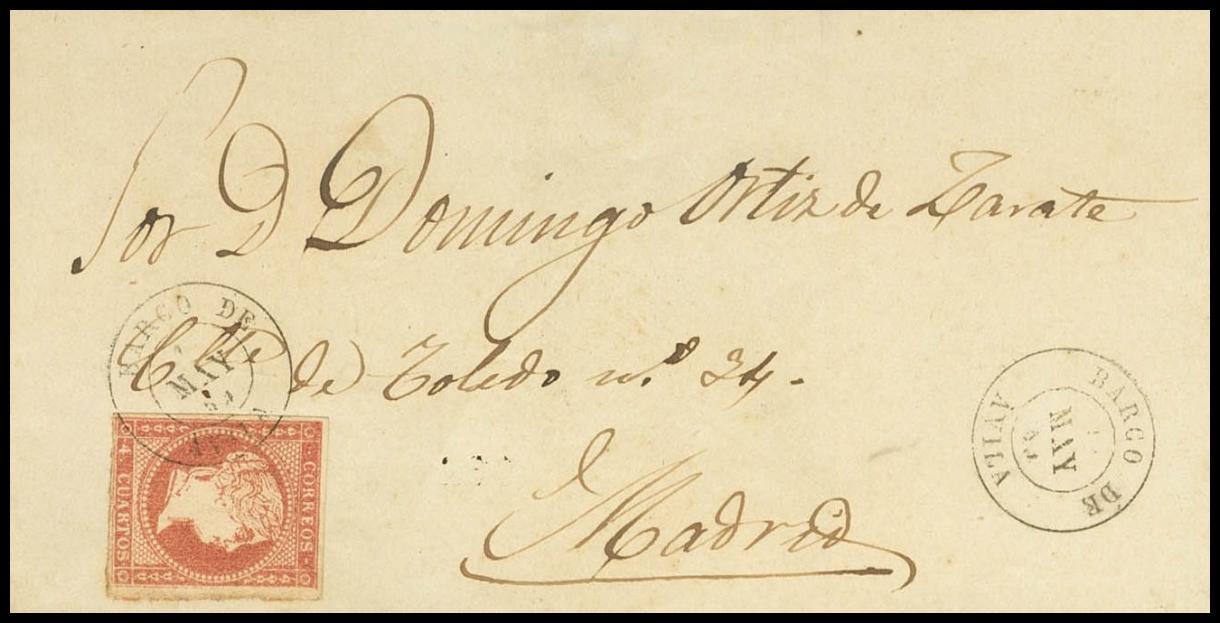 Sor D Domingo Ortiz de Zarate
Clle de Toledo n.º 34.
Madrid
BARCO DE AVILA
MAY
BARCO DE AVILA
MAY
CORREOS
4 CUARTOS